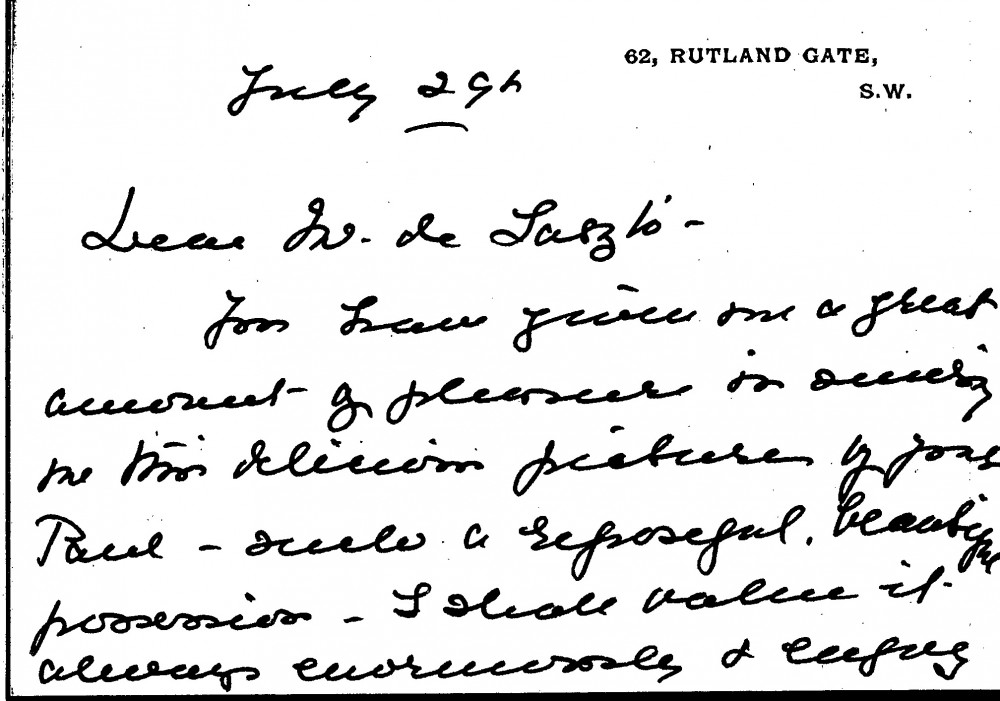 62, RUTLAND GATE,
S.W.
July 29th
Dear Mr. de László -
You have given me a great
amount of pleasure in sending
me this delicious picture of your
Paul - such a reposeful, beautiful
possession - I shall value it
always enormously & enjoy